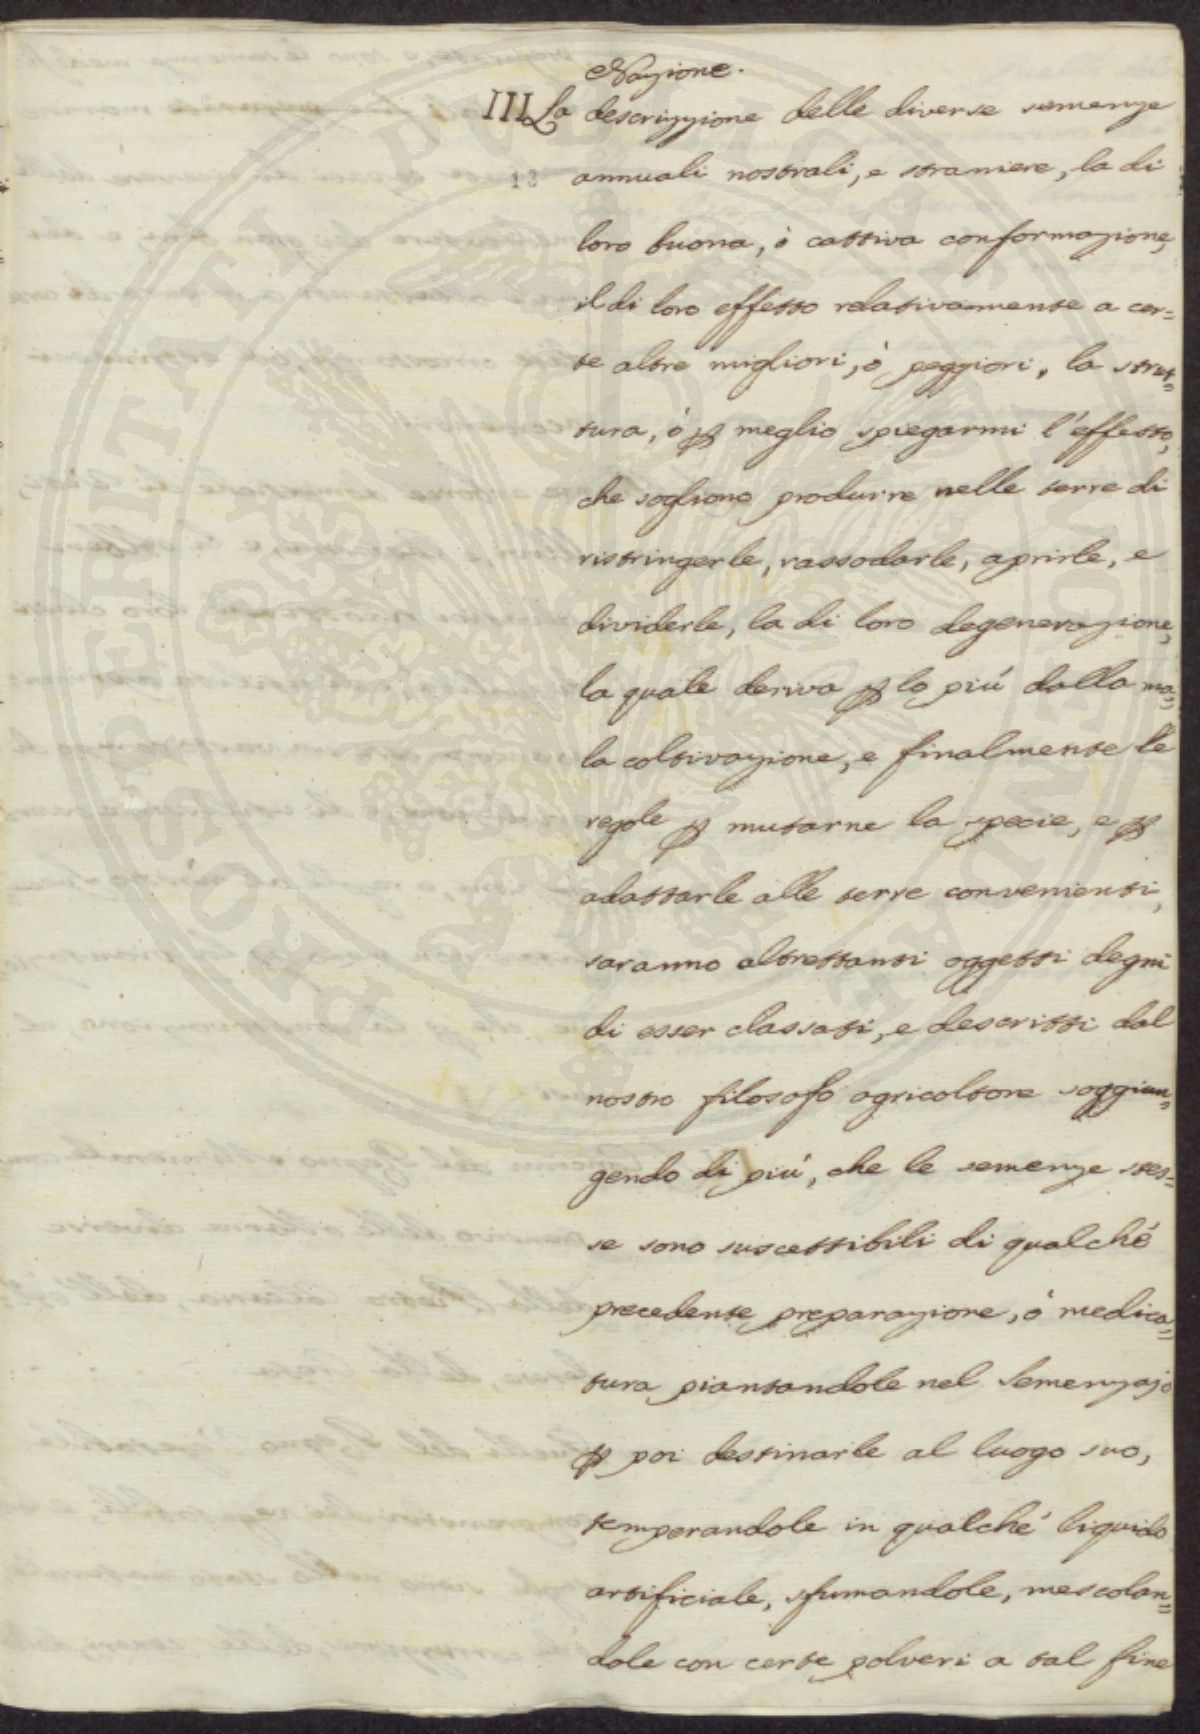 Nazione.
III La descrizzione delle diverse semenze
13 annuali nostrali, e straniere, la di
loro buona, ò cattiva conformazione,
il di loro effetto relativamente a cer=
te altre migliori, ò peggiori, la strut=
tura, ò ꝑ meglio spiegarmi l'effetto,
che sogliono produrre nelle terre di
ristringerle, rassodarle, aprirle, e
dividerle, la di loro degenerazione,
la quale deriva ꝑ lo più dalla ma=
la coltivazione, e finalmente le
regole ꝑ mutarne la specie, e ꝑ
adattarle alle terre convenienti,
saranno altrettanti oggetti degni
di esser classati, e descritti dal
nostro filosofo agricoltore soggiun=
gendo di più, che le semenze stes=
se sono suscettibili di qualché
precedente preparazione, ò medica=
tura piantandole nel Semenzajo
ꝑ poi destinarle al luogo suo,
temperandole in qualché liquido
artificiale, sfumandole, mescolan=
dole con certe polveri a tal fine
PROSPERITATI PUBLICAE AUGENDAE